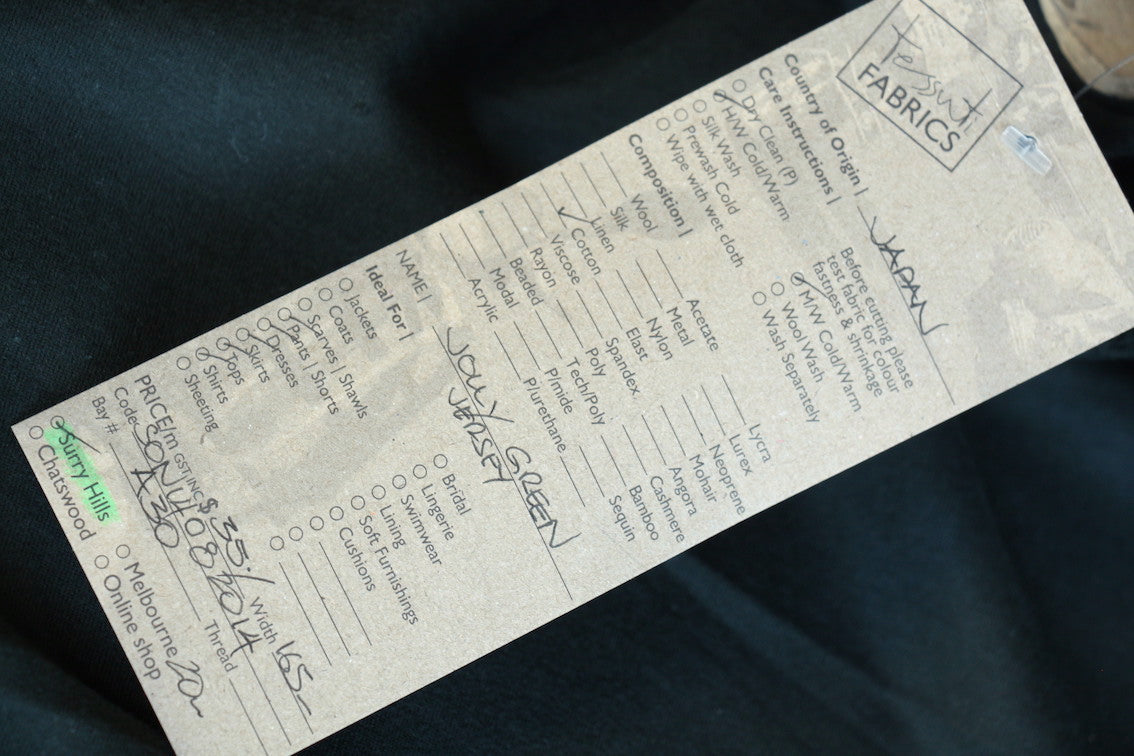 tessuti
FABRICS
Country of Origin | JAPAN
Care Instructions |
Before cutting please
test fabric for colour
fastness & shrinkage
Dry Clean (P)
H/W Cold/Warm
Silk Wash
Prewash Cold
Wipe with wet cloth
M/W Cold/Warm
Wool Wash
Wash Separately
Composition |
Wool
Silk
Linen
Cotton
Viscose
Rayon
Beaded
Modal
Acrylic
Acetate
Metal
Nylon
Elast
Spandex
Poly
Tech/Poly
P/mide
P/urethane
Lycra
Lurex
Neoprene
Mohair
Angora
Cashmere
Bamboo
Sequin
NAME | JOLLY GREEN
JERSEY
Ideal For |
Jackets
Coats
Scarves | Shawls
Pants | Shorts
Dresses
Skirts
Tops
Shirts
Sheeting
Bridal
Lingerie
Swimwear
Lining
Soft Furnishings
Cushions
PRICE/m GST INC $35./ Width 165-
Code: SON 1408 2014
Bay # A30 Thread
Surry Hills
Chatswood
Melbourne 20m
Online shop